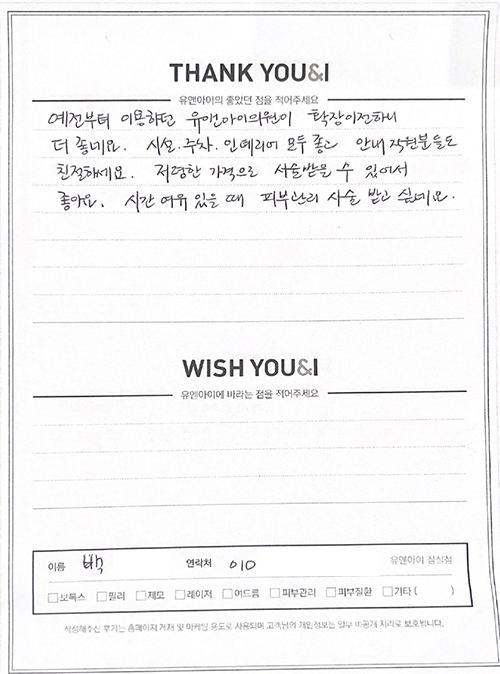 THANK YOU&I
유앤아이의 좋았던 점을 적어주세요
예전부터 이용하던 유앤아이의원이 확장이전하니
더 좋네요. 시설.주차.인테리어 모두 좋고 안내 직원분들도
친절하세요. 저렴한 가격으로 시술받을 수 있어서
좋아요. 시간 여유 있을 때 피부관리 시술 받고 싶네요.
WISH YOU&I
유앤아이에 바라는 점을 적어주세요
이름 백 연락처 010 유앤아이 잠실점
보톡스 필러 제모 레이저 여드름 피부관리 피부질환 기타 ( )
작성해주신 후기는 홈페이지 게재 및 마케팅 용도로 사용되며 고객님의 개인정보는 일부 비공개 처리로 보호됩니다.